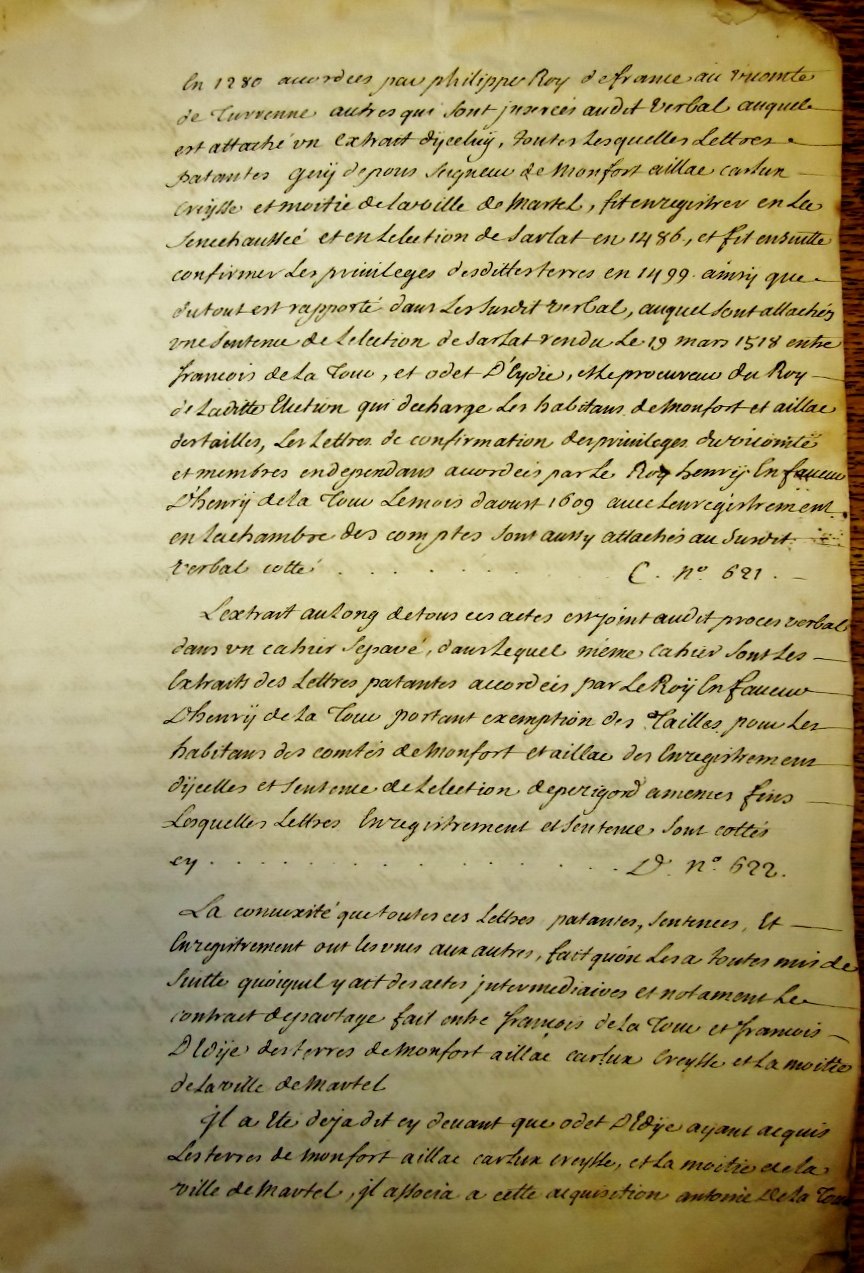 En 1280 accordées par philippe Roy de france au vicomte
de Turrenne autres qui sont jnserées audit verbal auquel
est attaché vn Extrait dyceluy, toutes Lesquelles Lettres
patantes guy depons Seigneur de Monfort aillac carlux
Creysse et moitie de la ville de Martel, fit enregistrer en La
Senechaussée et en Lelection de Sarlat en 1486, et fit ensuitte
confirmer Les privileges desdittes terres en 1499 ainsy que
du tout est rapporté dans Le Susdit verbal, auquel sont attachés
vne Sentence de Lelection de Sarlat rendu Le 19 mars 1518 entre
francois de La Tour, et odet D'Eydie, et Le procureur du Roy
de Laditte Election qui decharge Les habitans de Monfort et aillac
des tailles, Les Lettres de confirmation des privileges du vicomté
et membres en dependans accordeés par Le Roy henry En faveur
D'henrÿ de la Tour Le mois d'aoust 1609 avec L'enregistrement
en La chambre des comptes sont aussy attachés au Susdit
verbal cotté . . . . . . C. nº 621.
L'extrait au Long de tous ces actes est joint audit proces verbal
dans vn cahier Separé, dans Lequel méme Cahier Sont Les
Extraits des Lettres patantes accordeés par Le Roÿ En faueur
D'henrÿ de La Tour portant exemption des Tailles pour Les
habitans des comtés de Monfort et aillac des Enregistremens
dÿcelles et Sentence de Lelection de perigord a memes fins
Lesquelles Lettres Enregistrement et Sentence Sont cottés
cy . . . . . . . . . . D. nº 622.
La connexité que toutes ces Lettres patantes, Sentences, Et
Enregistrement ont les vnes aux autres, fait qu'on Les a toutes mis de
Suitte quoiquil y ait des actes jntermediaires et notament Le
contract de partage fait entre francois de La Tour et francois
D'Edÿe des terres de Monfort aillac carlux Creysse et La moitié
de La ville de Martel
jl a Eté deja dit cy devant que odet D'Edÿe ayant acquis
Les terres de monfort aillac carlux creysse, et La moitié de la
ville de Martel, jl associa a cette acquisition antoine De La Tour